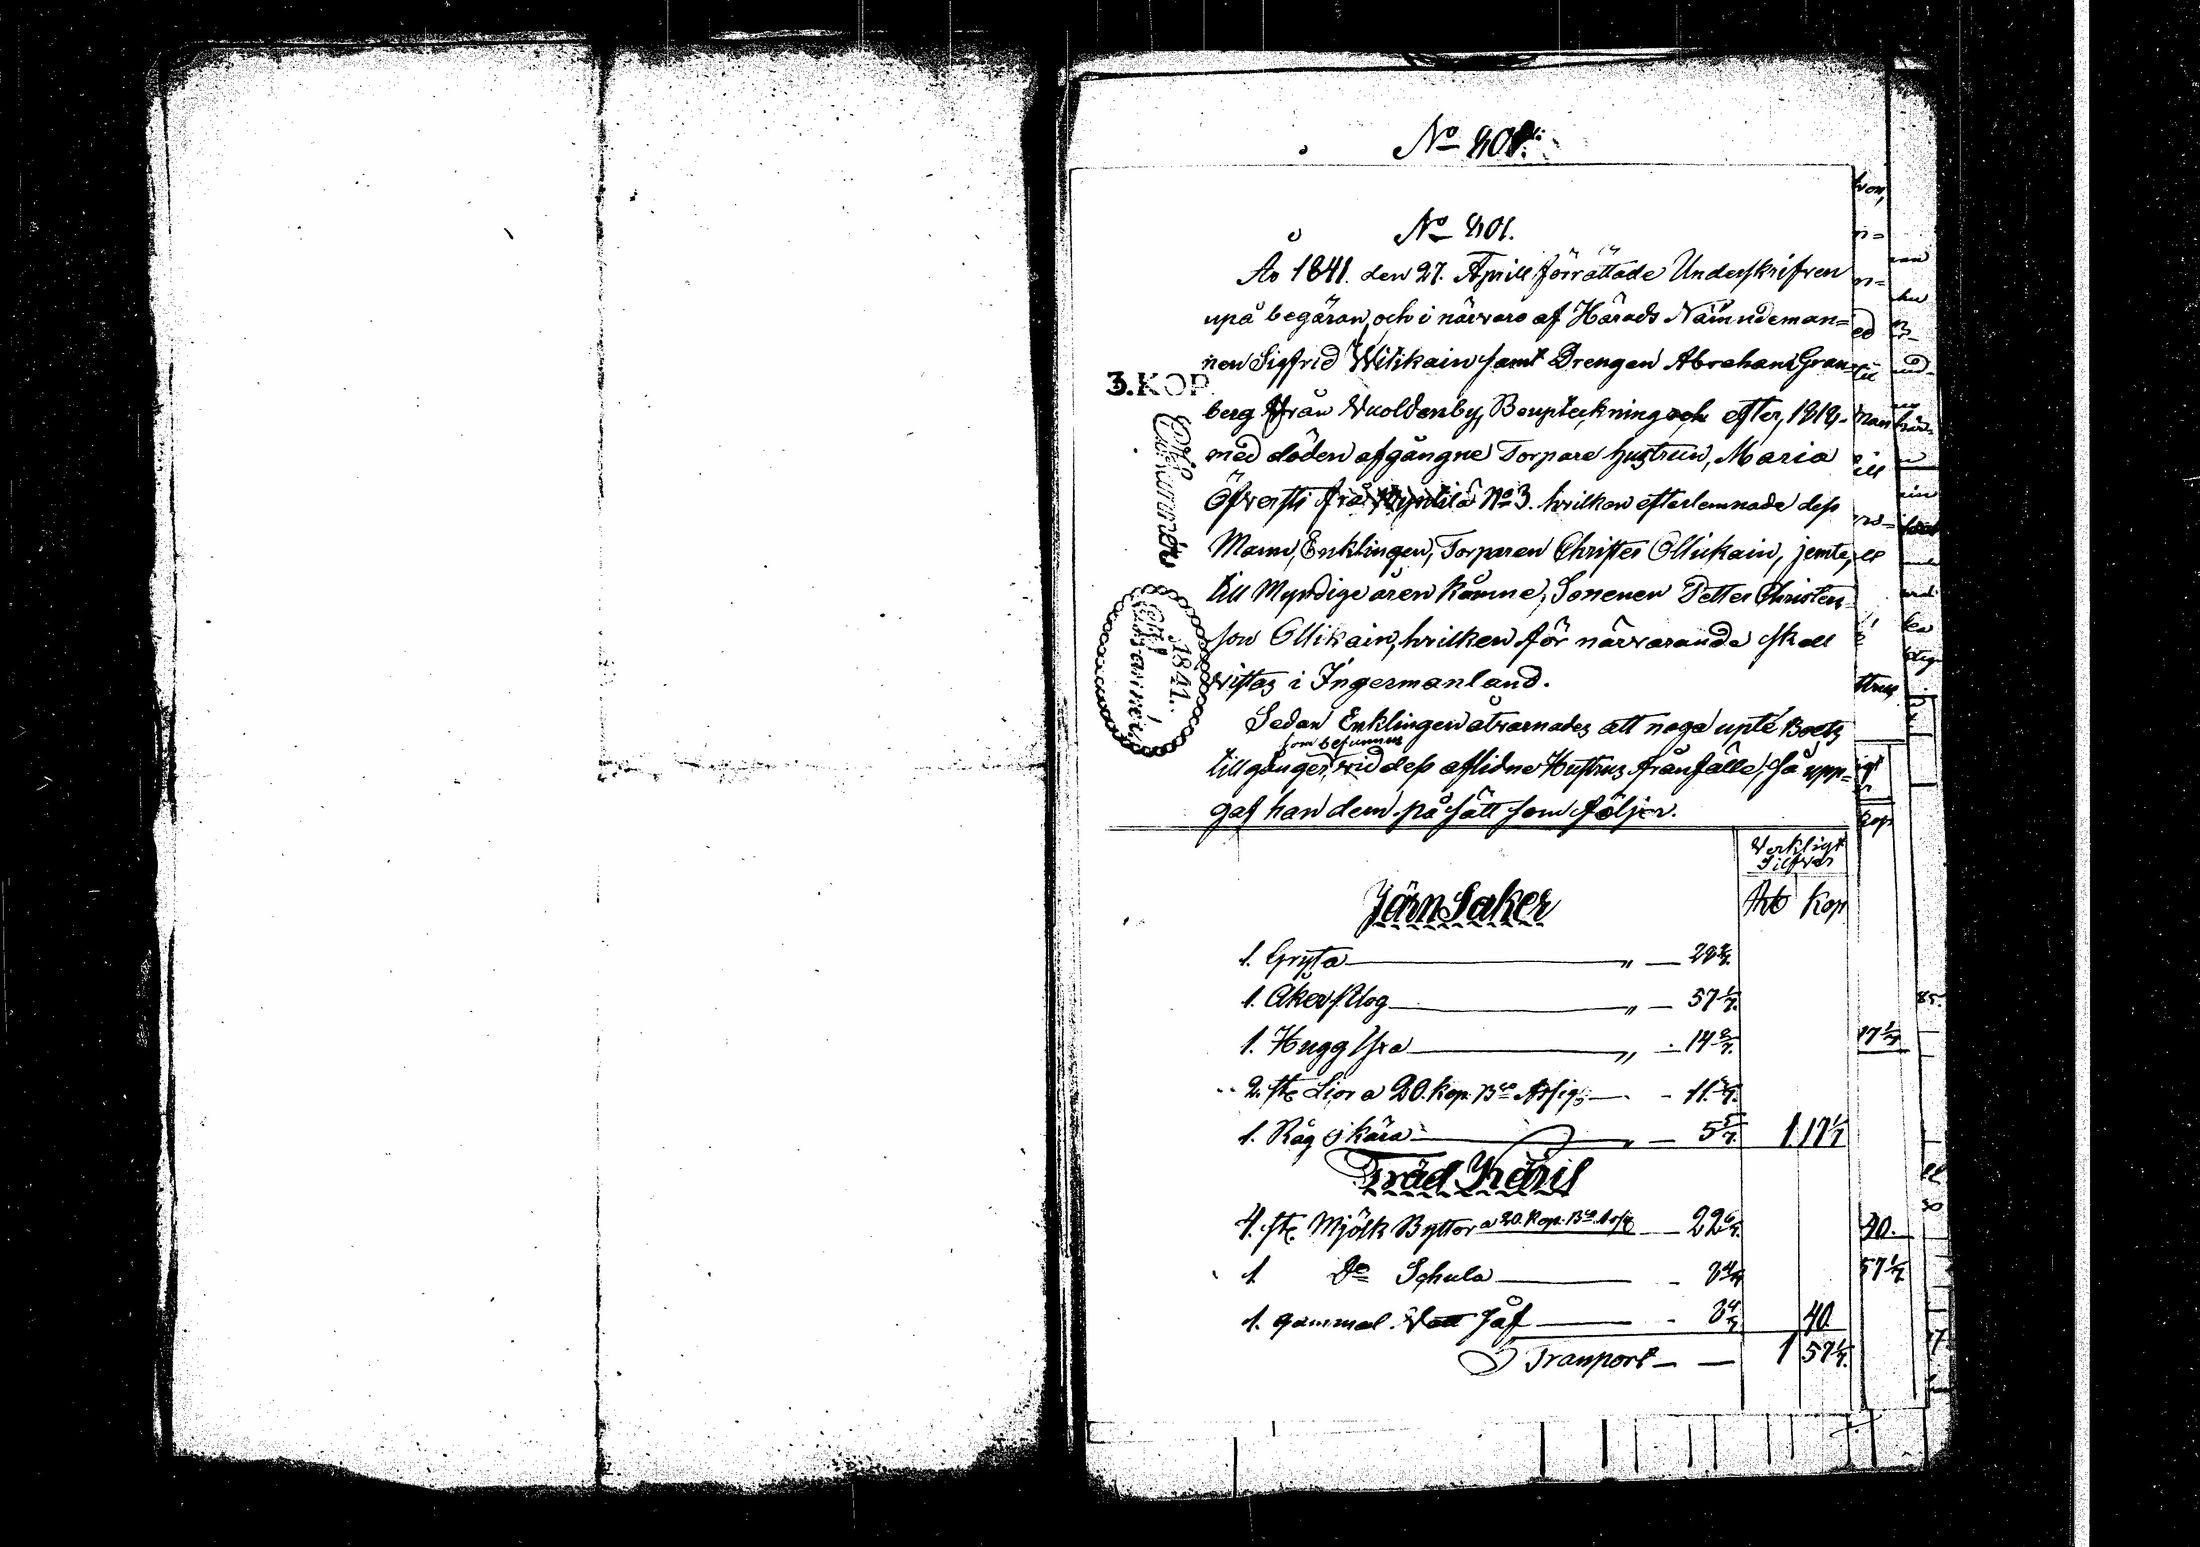 No 401.
No 401.
År 1841. den 27. April förrättade Underskrifven
upå begäran, och i närvaro af Härads Nämndeman=
nen Sigfrid Wilikain samt Drengen Abraham Gran=
berg från Wuoldenby, Bouptekning och efter, 1818.
med döden afgångne Torpare hustrun, Maria
Öfversti frå No 3. hvilken efterlemnade dess
Mann, Enklingen, Torparen Christer Ollikain, jemte,
till Myndige åren komne, Sonenen Petter Christers
son Ollikain, hvilken för närvarande skall
vistas i Ingermanland.
Sedan Enklingen åtvarnades att noga upte Boets
som befunnes
tillgånger, vid dess aflidne Hustrus frånfälle, så upp=
gaf han dem på sätt som följer.
3. KOP.
1841.
Verkligt
Silfver
Rub Kop
Järn Saker
1. Gryta — " — 28 4/7.
1. Åker Plog — " — 57 1/7.
1. Hugg Yxa — " — 14 2/7.
2. st. Lior a 20. kop. Bco Assig. — 11. 3/7.
1. Råg Skära — " — 5 5/7. 1 17 1/7
Träd Käril
4. st. Mjölk Byttor a 20. Kop. Bco. Assig — 22 6/7.
1 Do Schula — 8 4/7
1. gammal Så — 8 4/7 40.
Tranport — — 1 57 1/7.